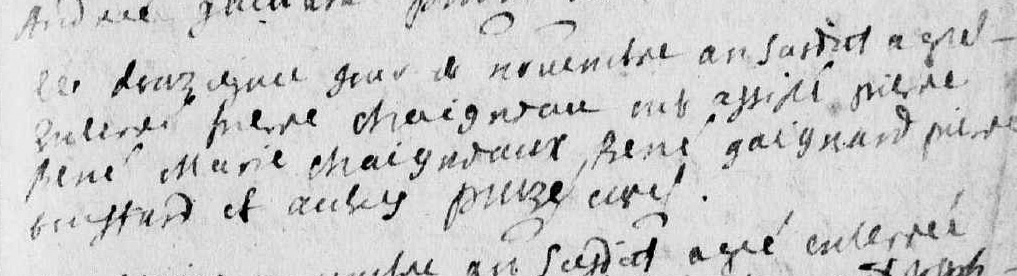 André gaignard
le douziesme jour de novembre an susdit a esté
enterré pierre Chaigneau ont assisté pierre
René Marie Chaigneaux, René gaignard pierre
et autres curé.
an susdit a esté enterrée